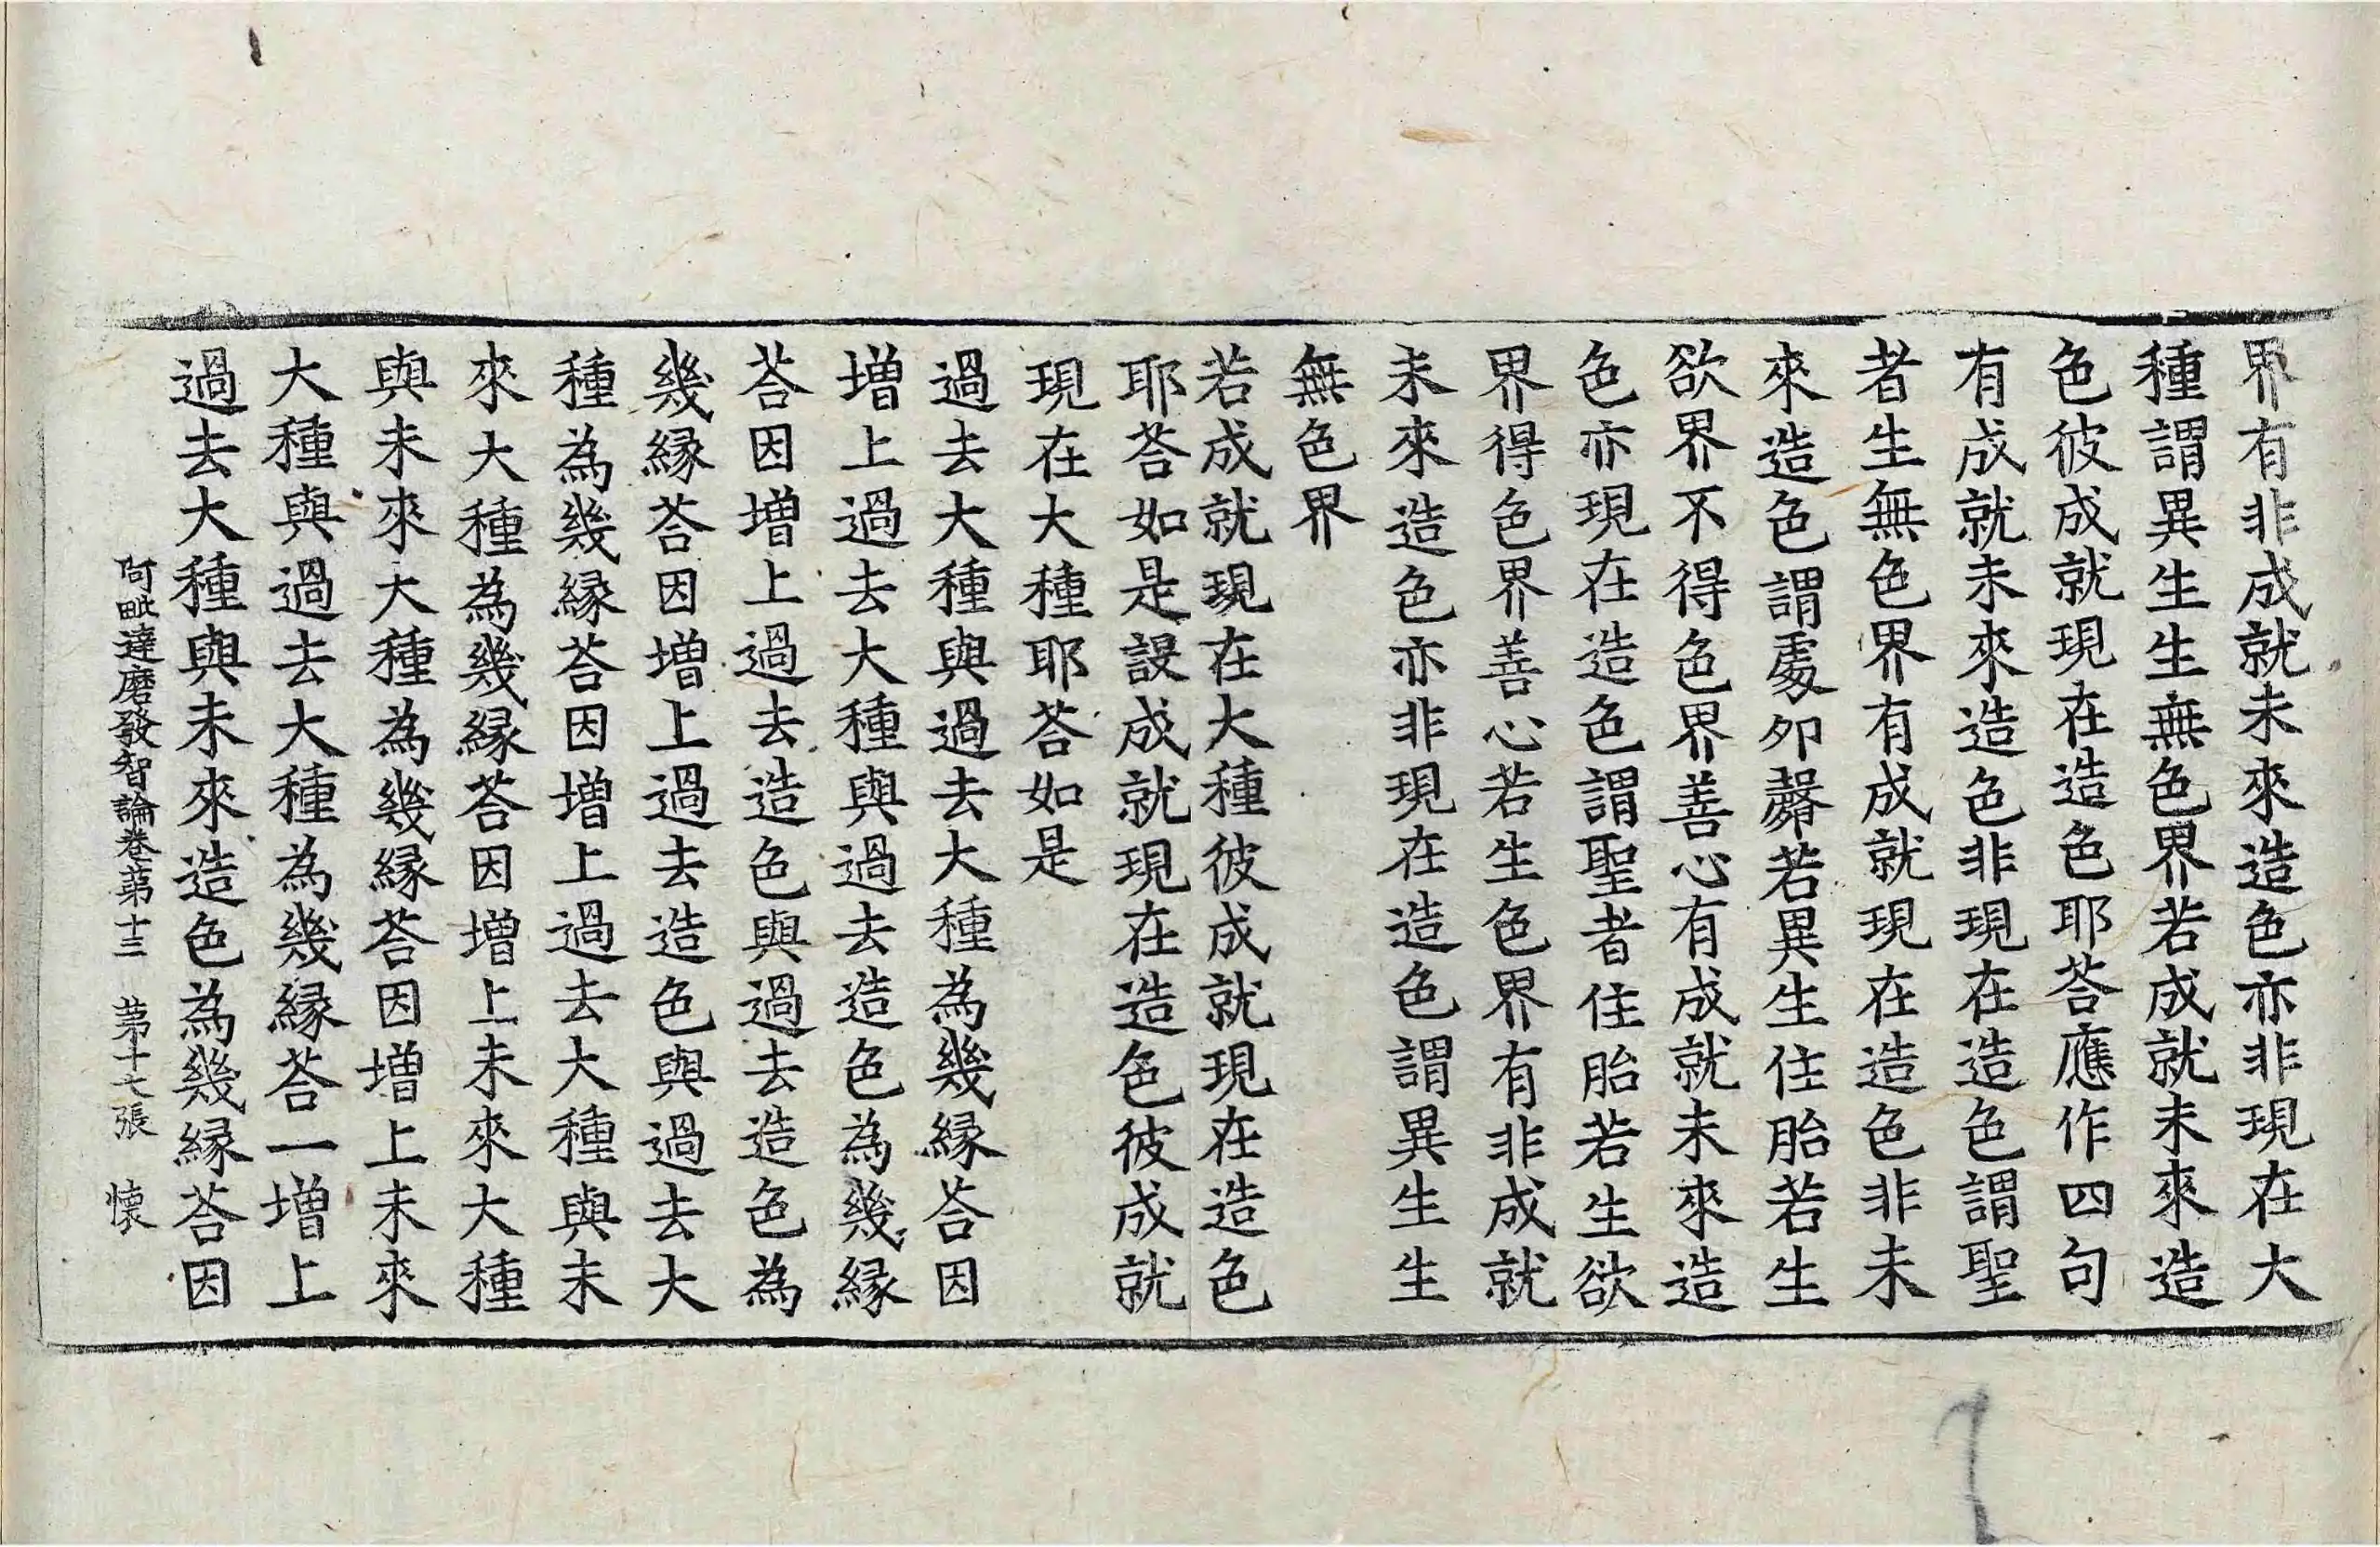 界有非成就未來造色亦非現在大
種謂異生生無色界若成就未來造
色彼成就現在造色耶荅應作四句
有成就未來造色非現在造色謂聖
者生無色界有成就現在造色非未
來造色謂處夘㲉若異生住胎若生
欲界不得色界善心有成就未來造
色亦現在造色謂聖者住胎若生欲
界得色界善心若生色界有非成就
未來造色亦非現在造色謂異生生
無色界
若成就現在大種彼成就現在造色
耶荅如是設成就現在造色彼成就
現在大種耶荅如是
過去大種與過去大種為幾緣荅因
增上過去大種與過去造色為幾緣
荅因增上過去造色與過去造色為
幾緣荅因增上過去造色與過去大
種為幾緣荅因增上過去大種與未
來大種為幾緣荅因增上未來大種
與未來大種為幾緣荅因增上未來
大種與過去大種為幾緣荅一增上
過去大種與未來造色為幾緣荅因
阿毗達磨發智論卷第十三 第十七張 懷